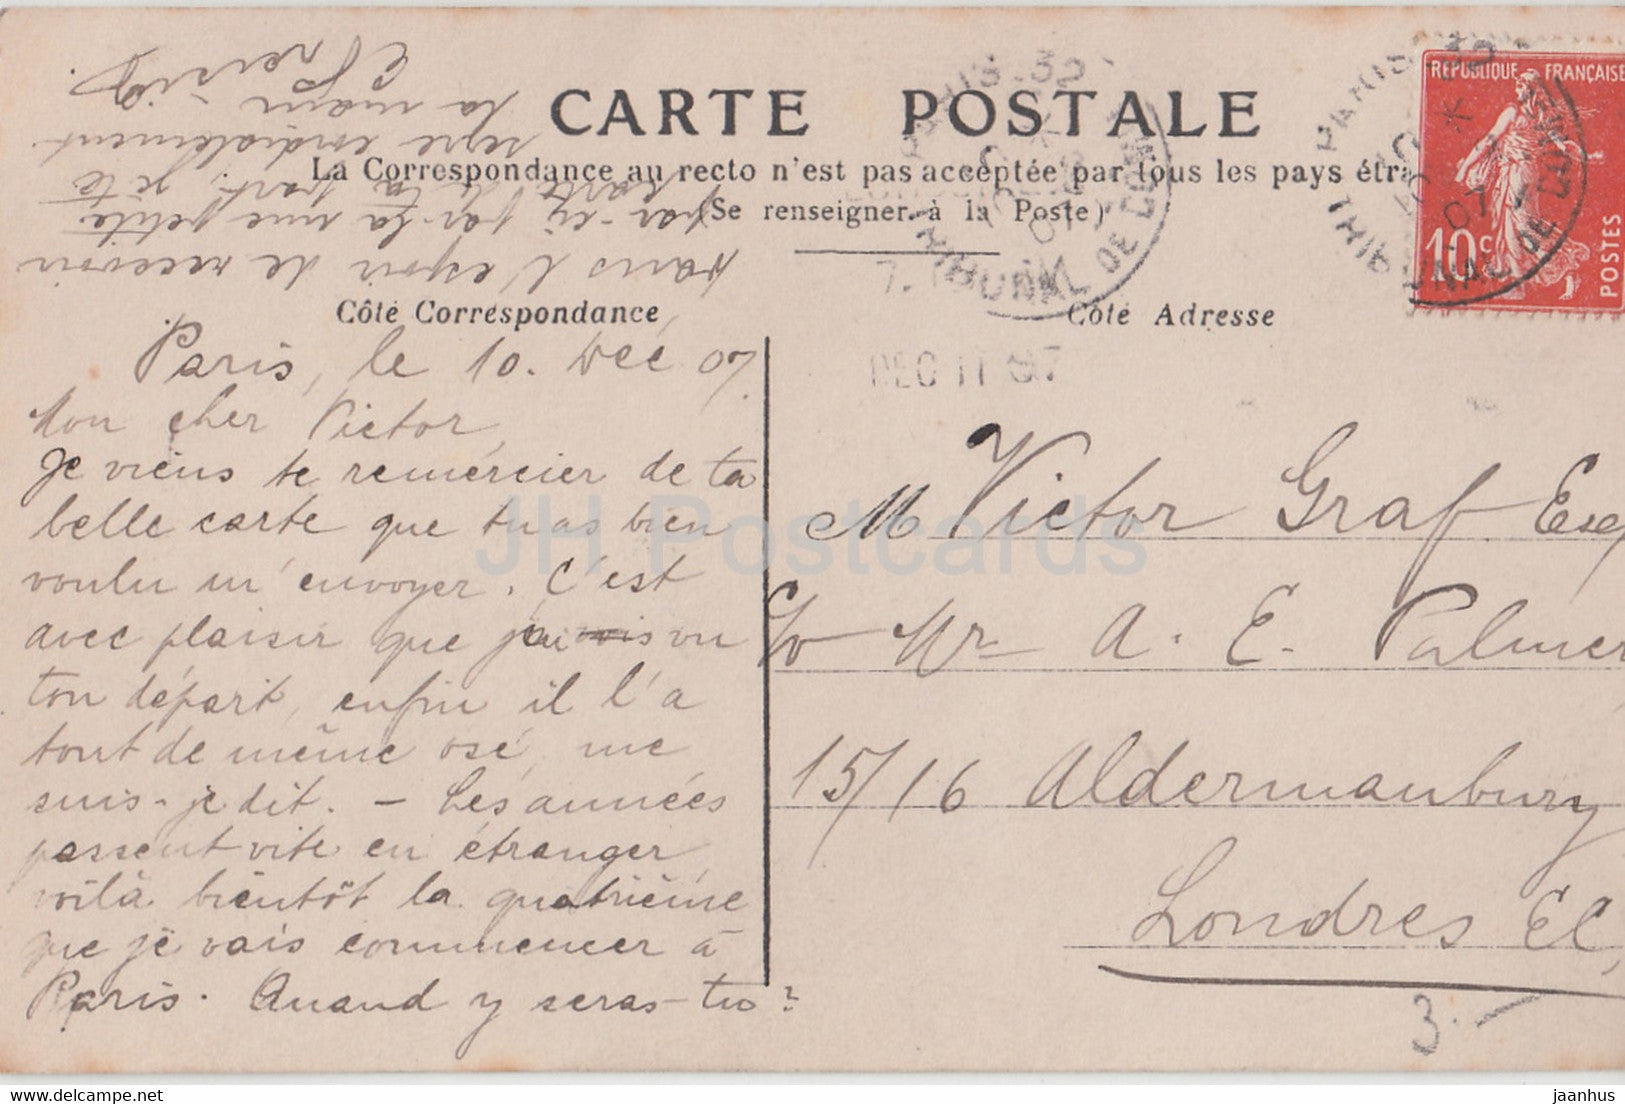 CARTE POSTALE
La Correspondance au recto n'est pas acceptée par tous les pays étra
(Se renseigner à la Poste)
Côté Correspondance
Côté Adresse
REPUBLIQUE FRANÇAISE
10c
POSTES
PARIS
TRIBUNAL DE COMM
DEC 11 07
Paris, le 10. Déc 07.
Mon cher Victor,
Je viens te remércier de ta
belle carte que tu as bien
voulu m'envoyer. C'est
avec plaisir que j'ai vu
ton départ, enfin il l'a
tout de même osé, me
suis-je dit. – Les années
passent vite en étranger
voilà bientôt la quatrième
que je vais commencer à
Paris. Quand y seras-tu?
Dans l'espoir de recevoir
par-ci par-la une petite
carte de ta part, je te
serre cordialement
la main
M Victor Graf Esq
c/o Mr A. E. Palmer
15/16 Aldermanbury
Londres EC,
3.–
JH Postcards
delcampe.net
jaanhus